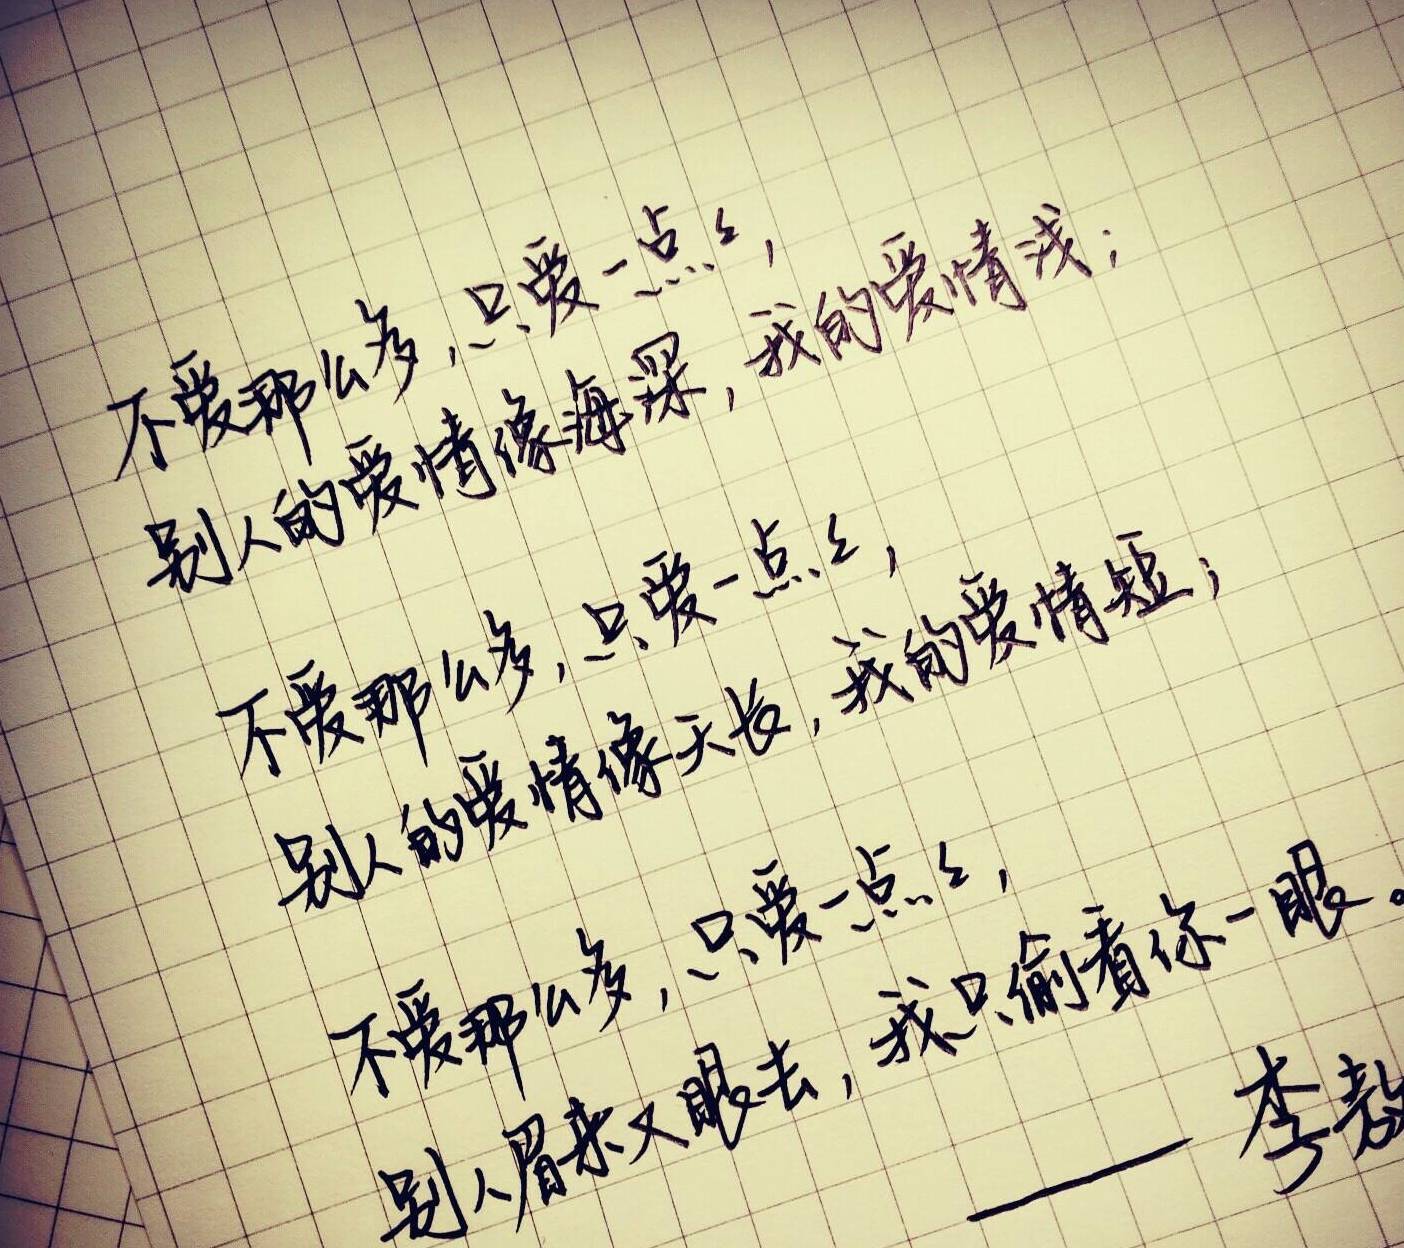 不爱那么多，只爱一点点，
别人的爱情像海深，我的爱情浅；
不爱那么多，只爱一点点，
别人的爱情像天长，我的爱情短；
不爱那么多，只爱一点点，
别人眉来又眼去，我只偷看你一眼。
——李敖